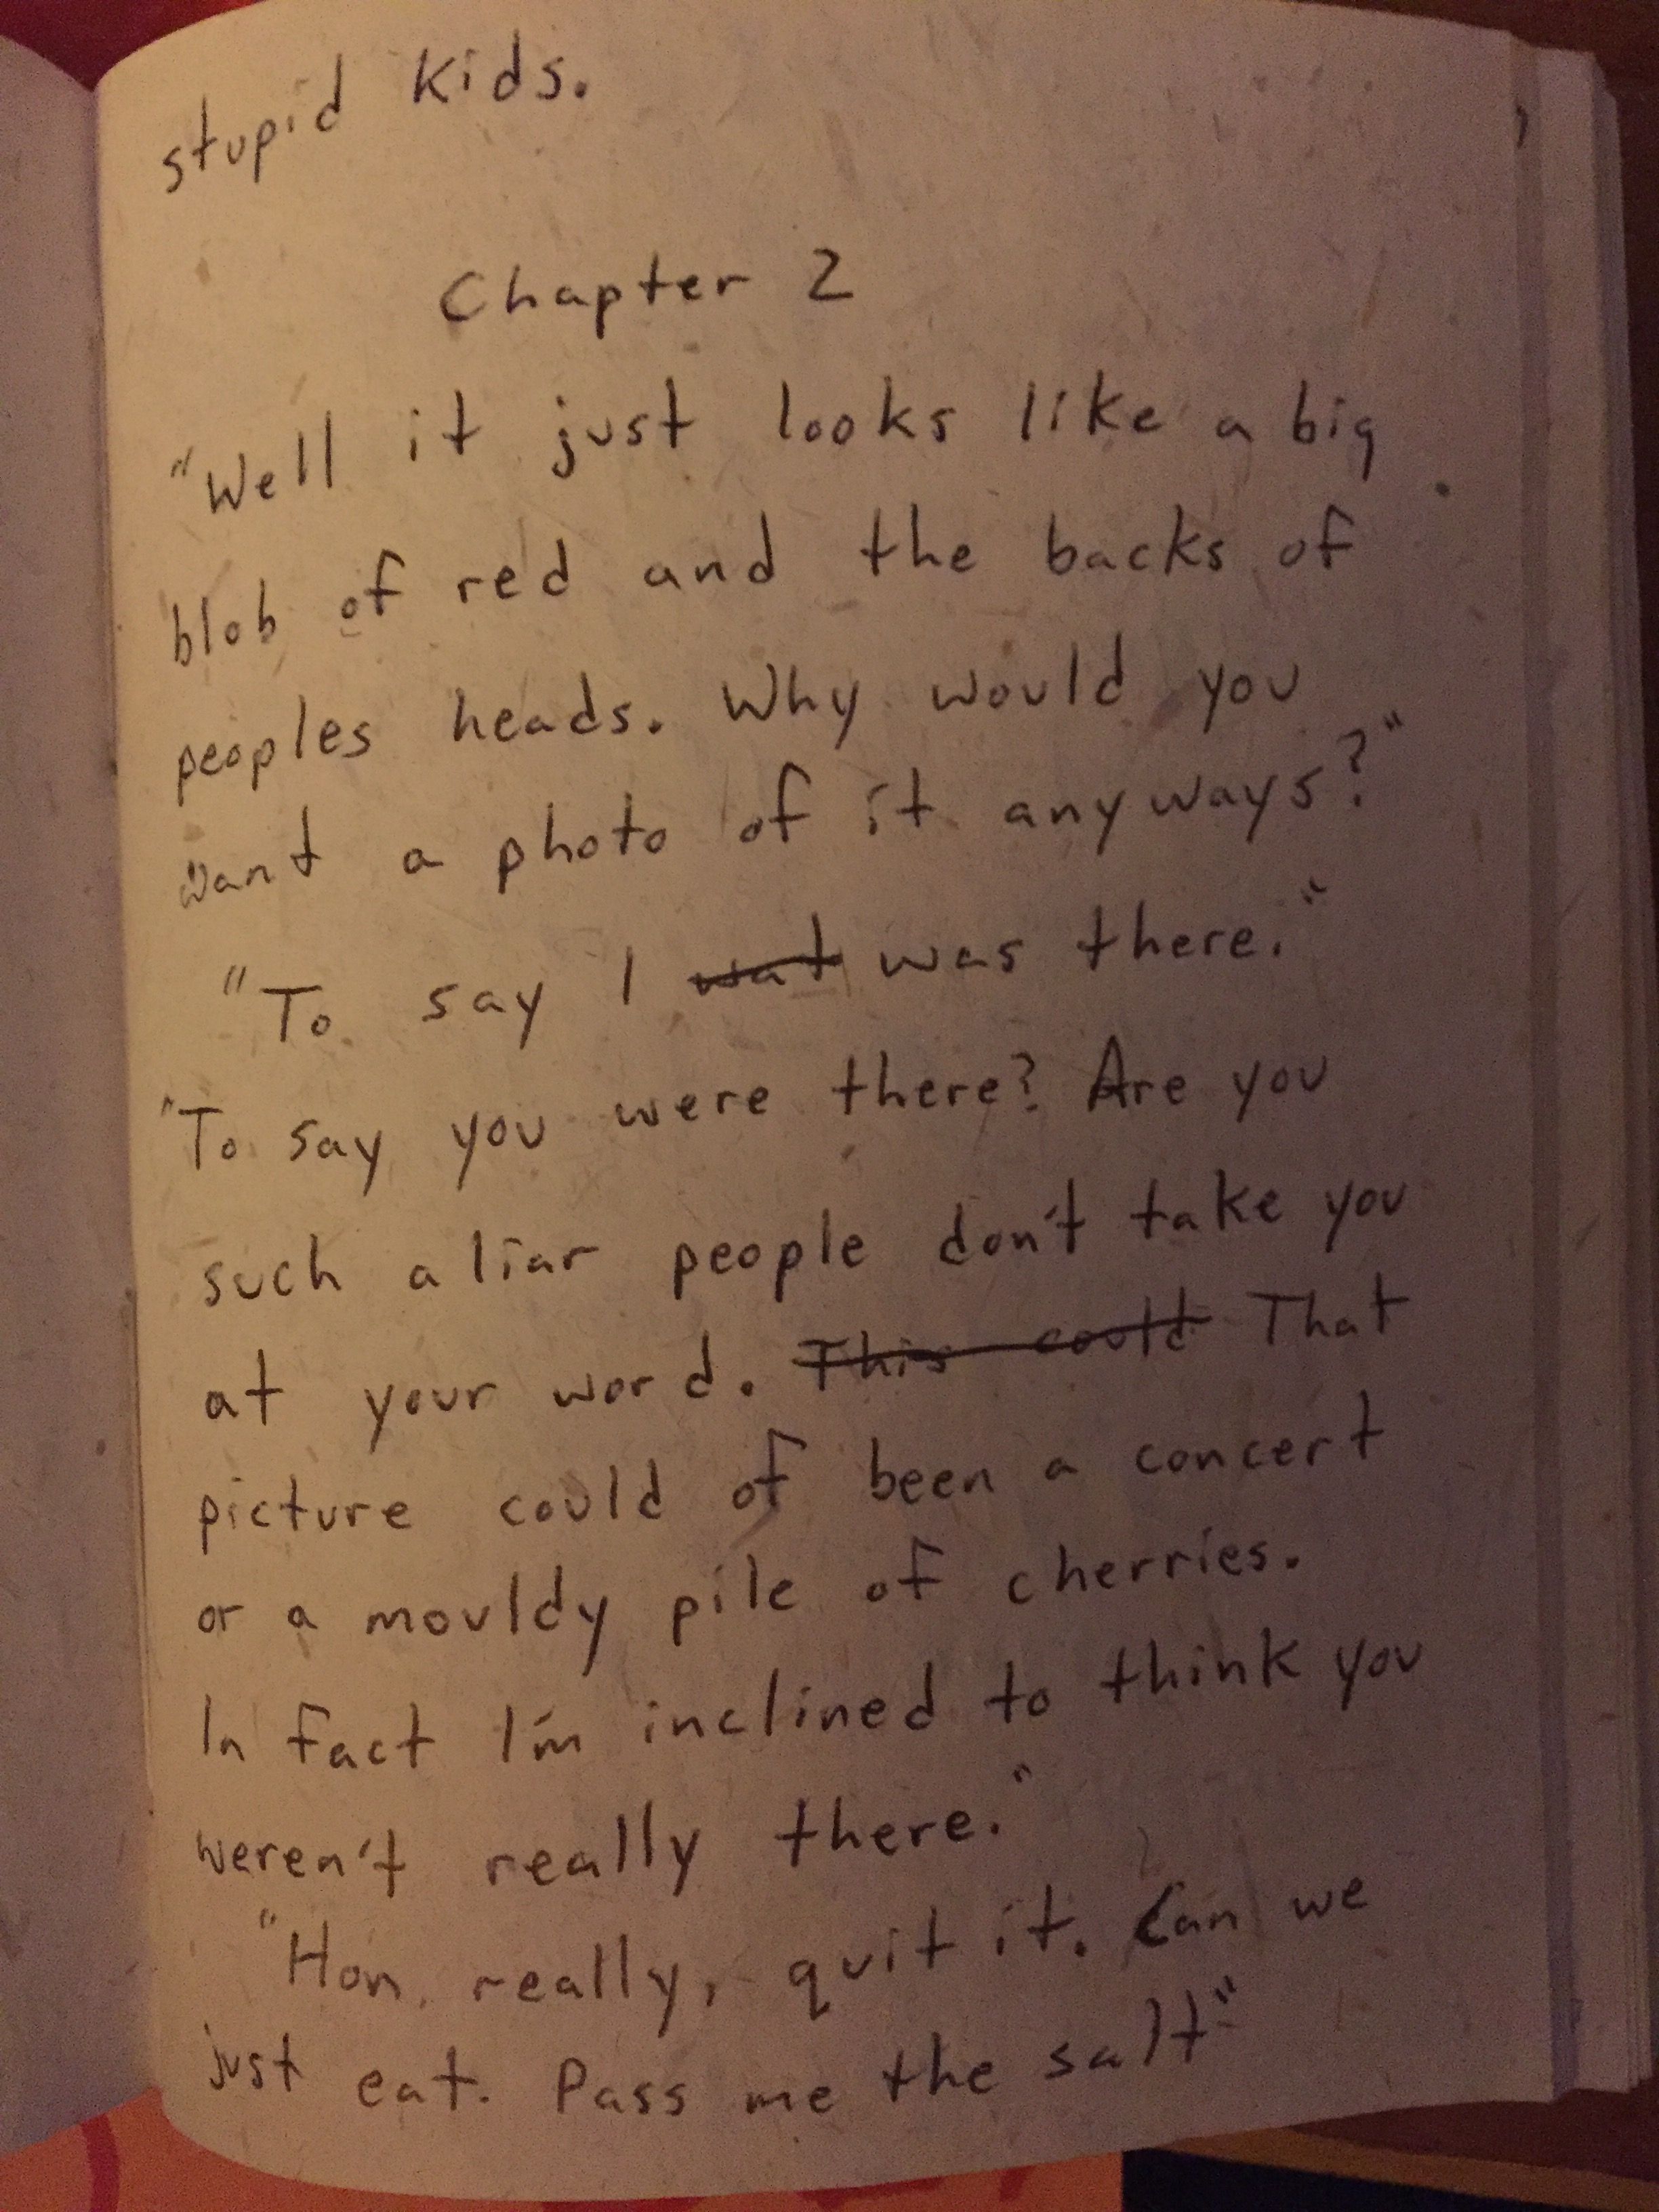 stupid kids.
Chapter 2
"Well it just looks like a big
blob of red and the backs of
peoples heads. Why would you
want a photo of it anyways?"
"To say I ~~wat~~ was there."
"To say you were there? Are you
such a liar people don't take you
at your word. ~~This could~~ That
picture could of been a concert
or a mouldy pile of cherries.
In fact I'm inclined to think you
weren't really there."
"Hon, really, quit it. Can we
just eat. Pass me the salt"